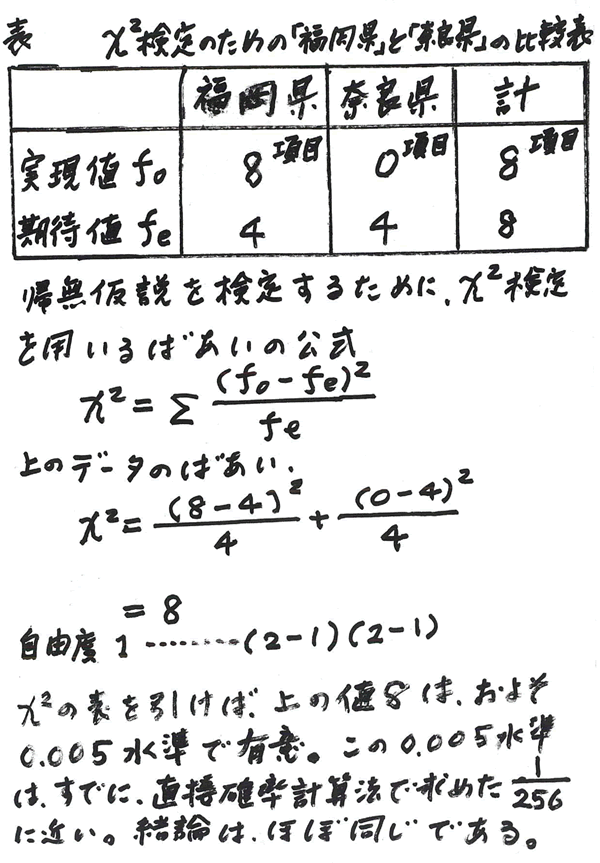 表 χ²検定のための「福岡県」と「奈良県」の比較表
福岡県 奈良県 計
実現値 fo 8項目 0項目 8項目
期待値 fe 4 4 8
帰無仮説を検定するために、χ²検定
を用いるばあいの公式
χ² = Σ (fo − fe)² / fe
上のデータのばあい、
χ² = (8−4)² / 4 + (0−4)² / 4
= 8
自由度 1 ········(2−1)(2−1)
χ²の表を引けば、上の値8は、およそ
0.005水準で有意。この0.005水準
は、すでに、直接確率計算法で求めた 1/256
に近い。結論は、ほぼ同じである。